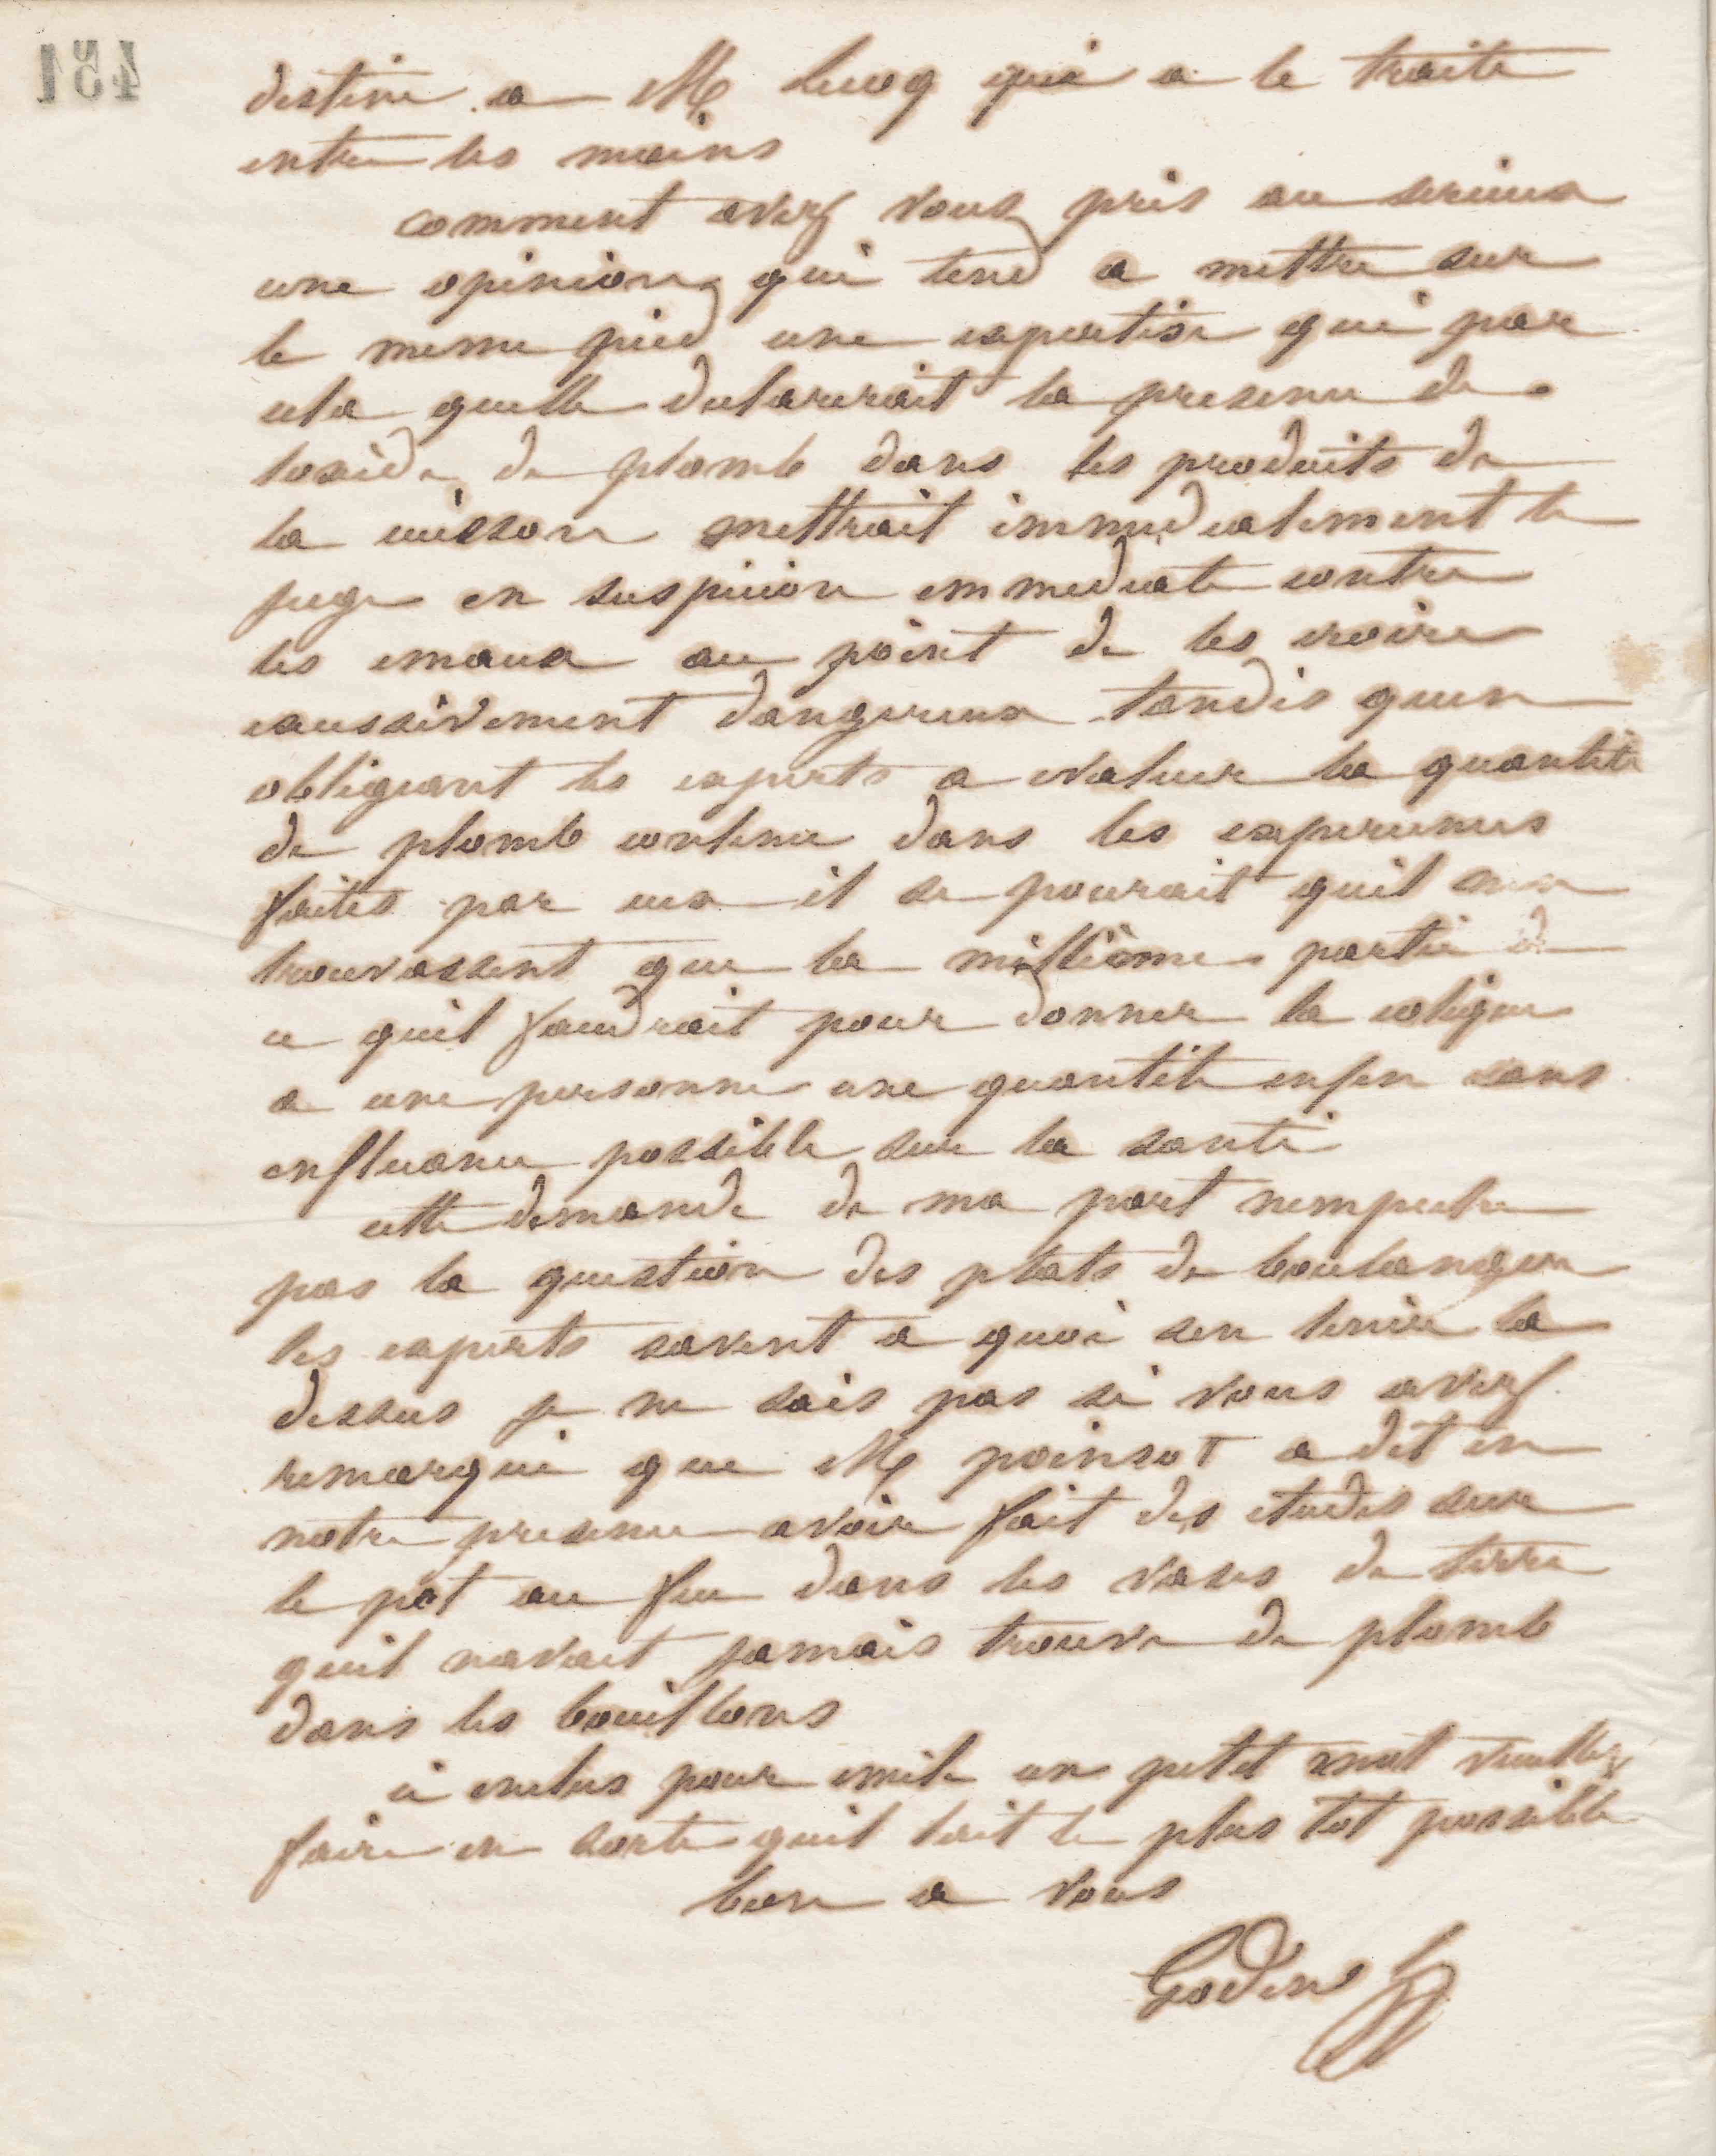 451
destine a M Lecoq qui a le traite
entre les mains
comment avez vous pris au serieux
une opinion qui tend a mettre sur
le meme pied une expertise qui par
cela quelle declarerait la presence de
loxide de plomb dans les produits de
la cuisson mettrait immediatement le
juge en suspicion immediate contre
les emaux au point de les croire
excessivement dangereux tandis quen
obligeant les experts a evaluer la quantite
de plomb contenu dans les experiences
faites par eux il se pourait quil nen
trouvassent que la millième partie de
ce quil faudrait pour donner la colique
a une personne une quantite enfin sans
influance possible sur la santé
cette demande de ma part nempeche
pas la question des plats de boulanger
les experts savent a quoi sen tenir la
dessus je ne sais pas si vous avez
remarqué que M poinsot a dit en
notre presence avoir fait des etudes sur
le pot au feu dans les vases de terre
quil navait jamais trouve de plomb
dans les bouillons
ci inclus pour emile un petit mot veuillez
faire en sorte quil lait le plus tot possible
bien a vous
Godin